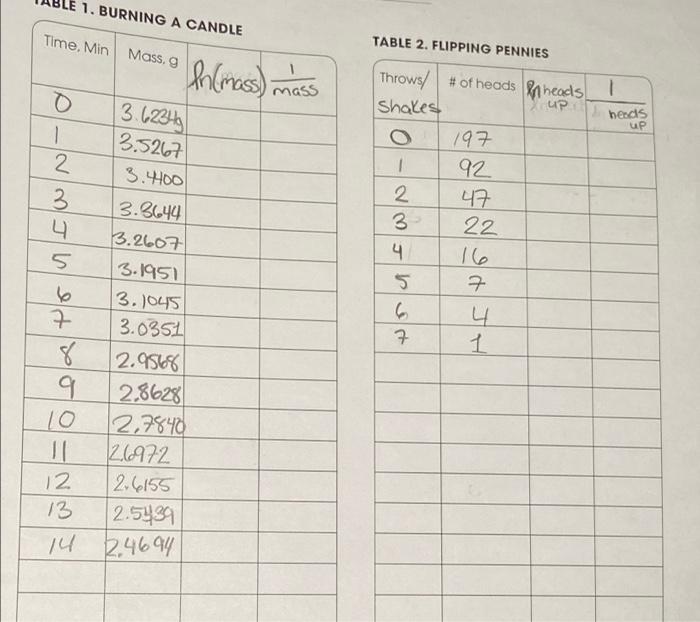 TABLE 1. BURNING A CANDLE
Time, Min Mass, g ln(mass) 1/mass
0 3.6234g
1 3.5267
2 3.4400
3 3.3644
4 3.2607
5 3.1951
6 3.1045
7 3.0351
8 2.9568
9 2.8628
10 2.7840
11 2.6972
12 2.6155
13 2.5439
14 2.4694
TABLE 2. FLIPPING PENNIES
Throws/ # of heads ln heads 1
Shakes up heads
up
0 197
1 92
2 47
3 22
4 16
5 7
6 4
7 1